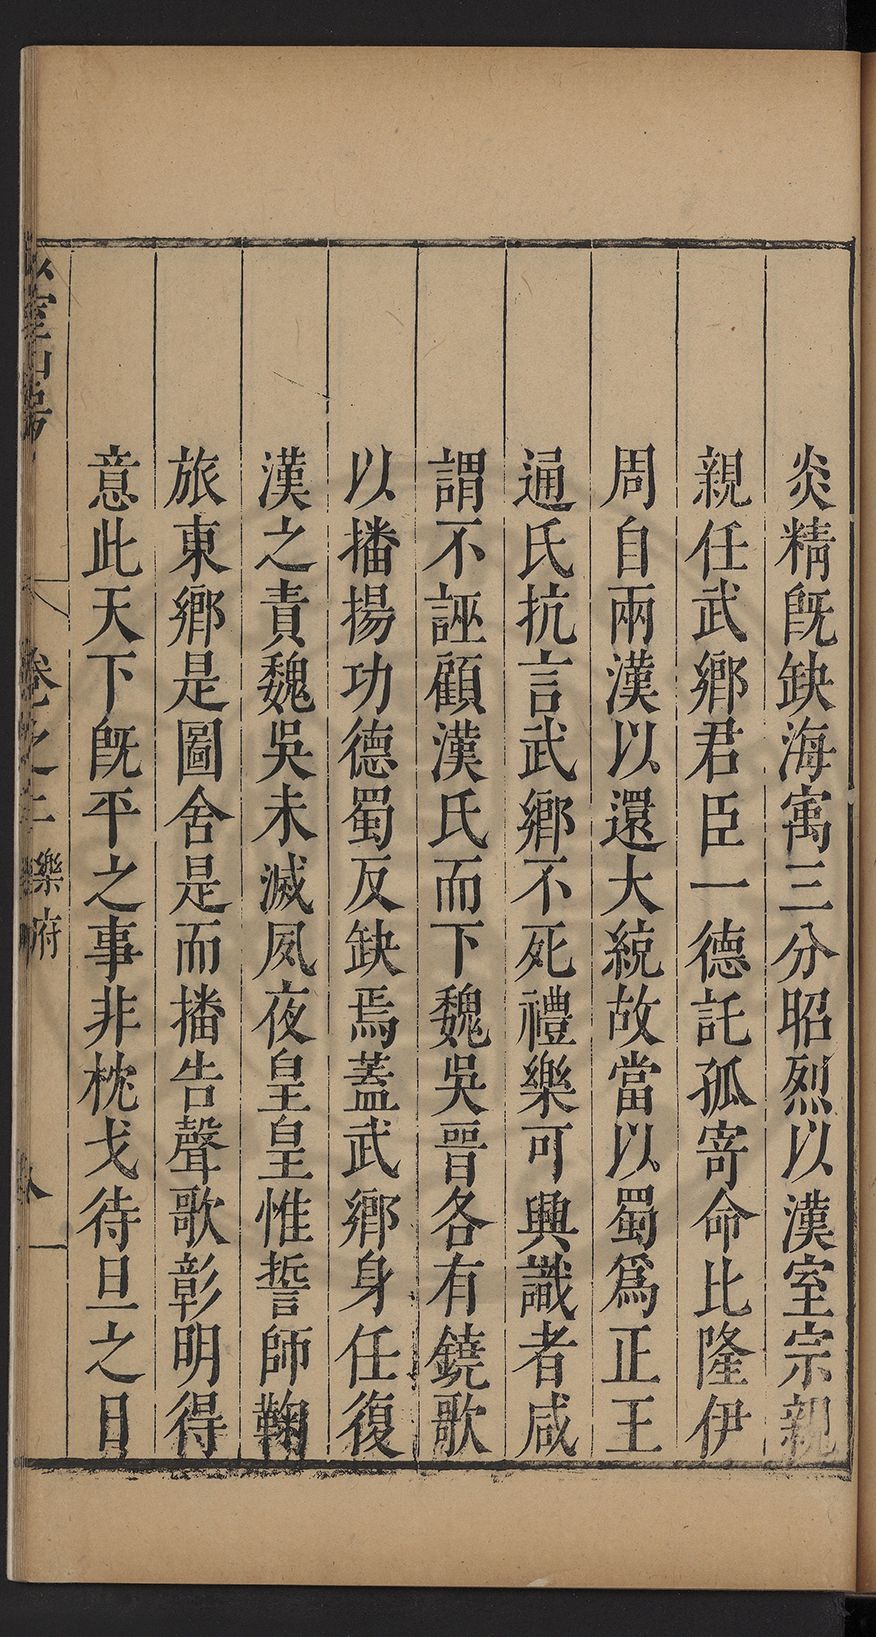 炎精旣缺海寓三分昭烈以漢室宗親
親任武鄉君臣一德託孤寄命比隆伊
周自兩漢以還大統故當以蜀爲正王
通氏抗言武鄉不死禮樂可興識者咸
謂不誣顧漢氏而下魏吳晉各有鐃歌
以播揚功德蜀反缺焉蓋武鄉身任復
漢之責魏吳未滅夙夜皇皇惟誓師鞠
旅東鄉是圖舍是而播告聲歌彰明得
意此天下旣平之事非枕戈待旦之日
卷之 樂府